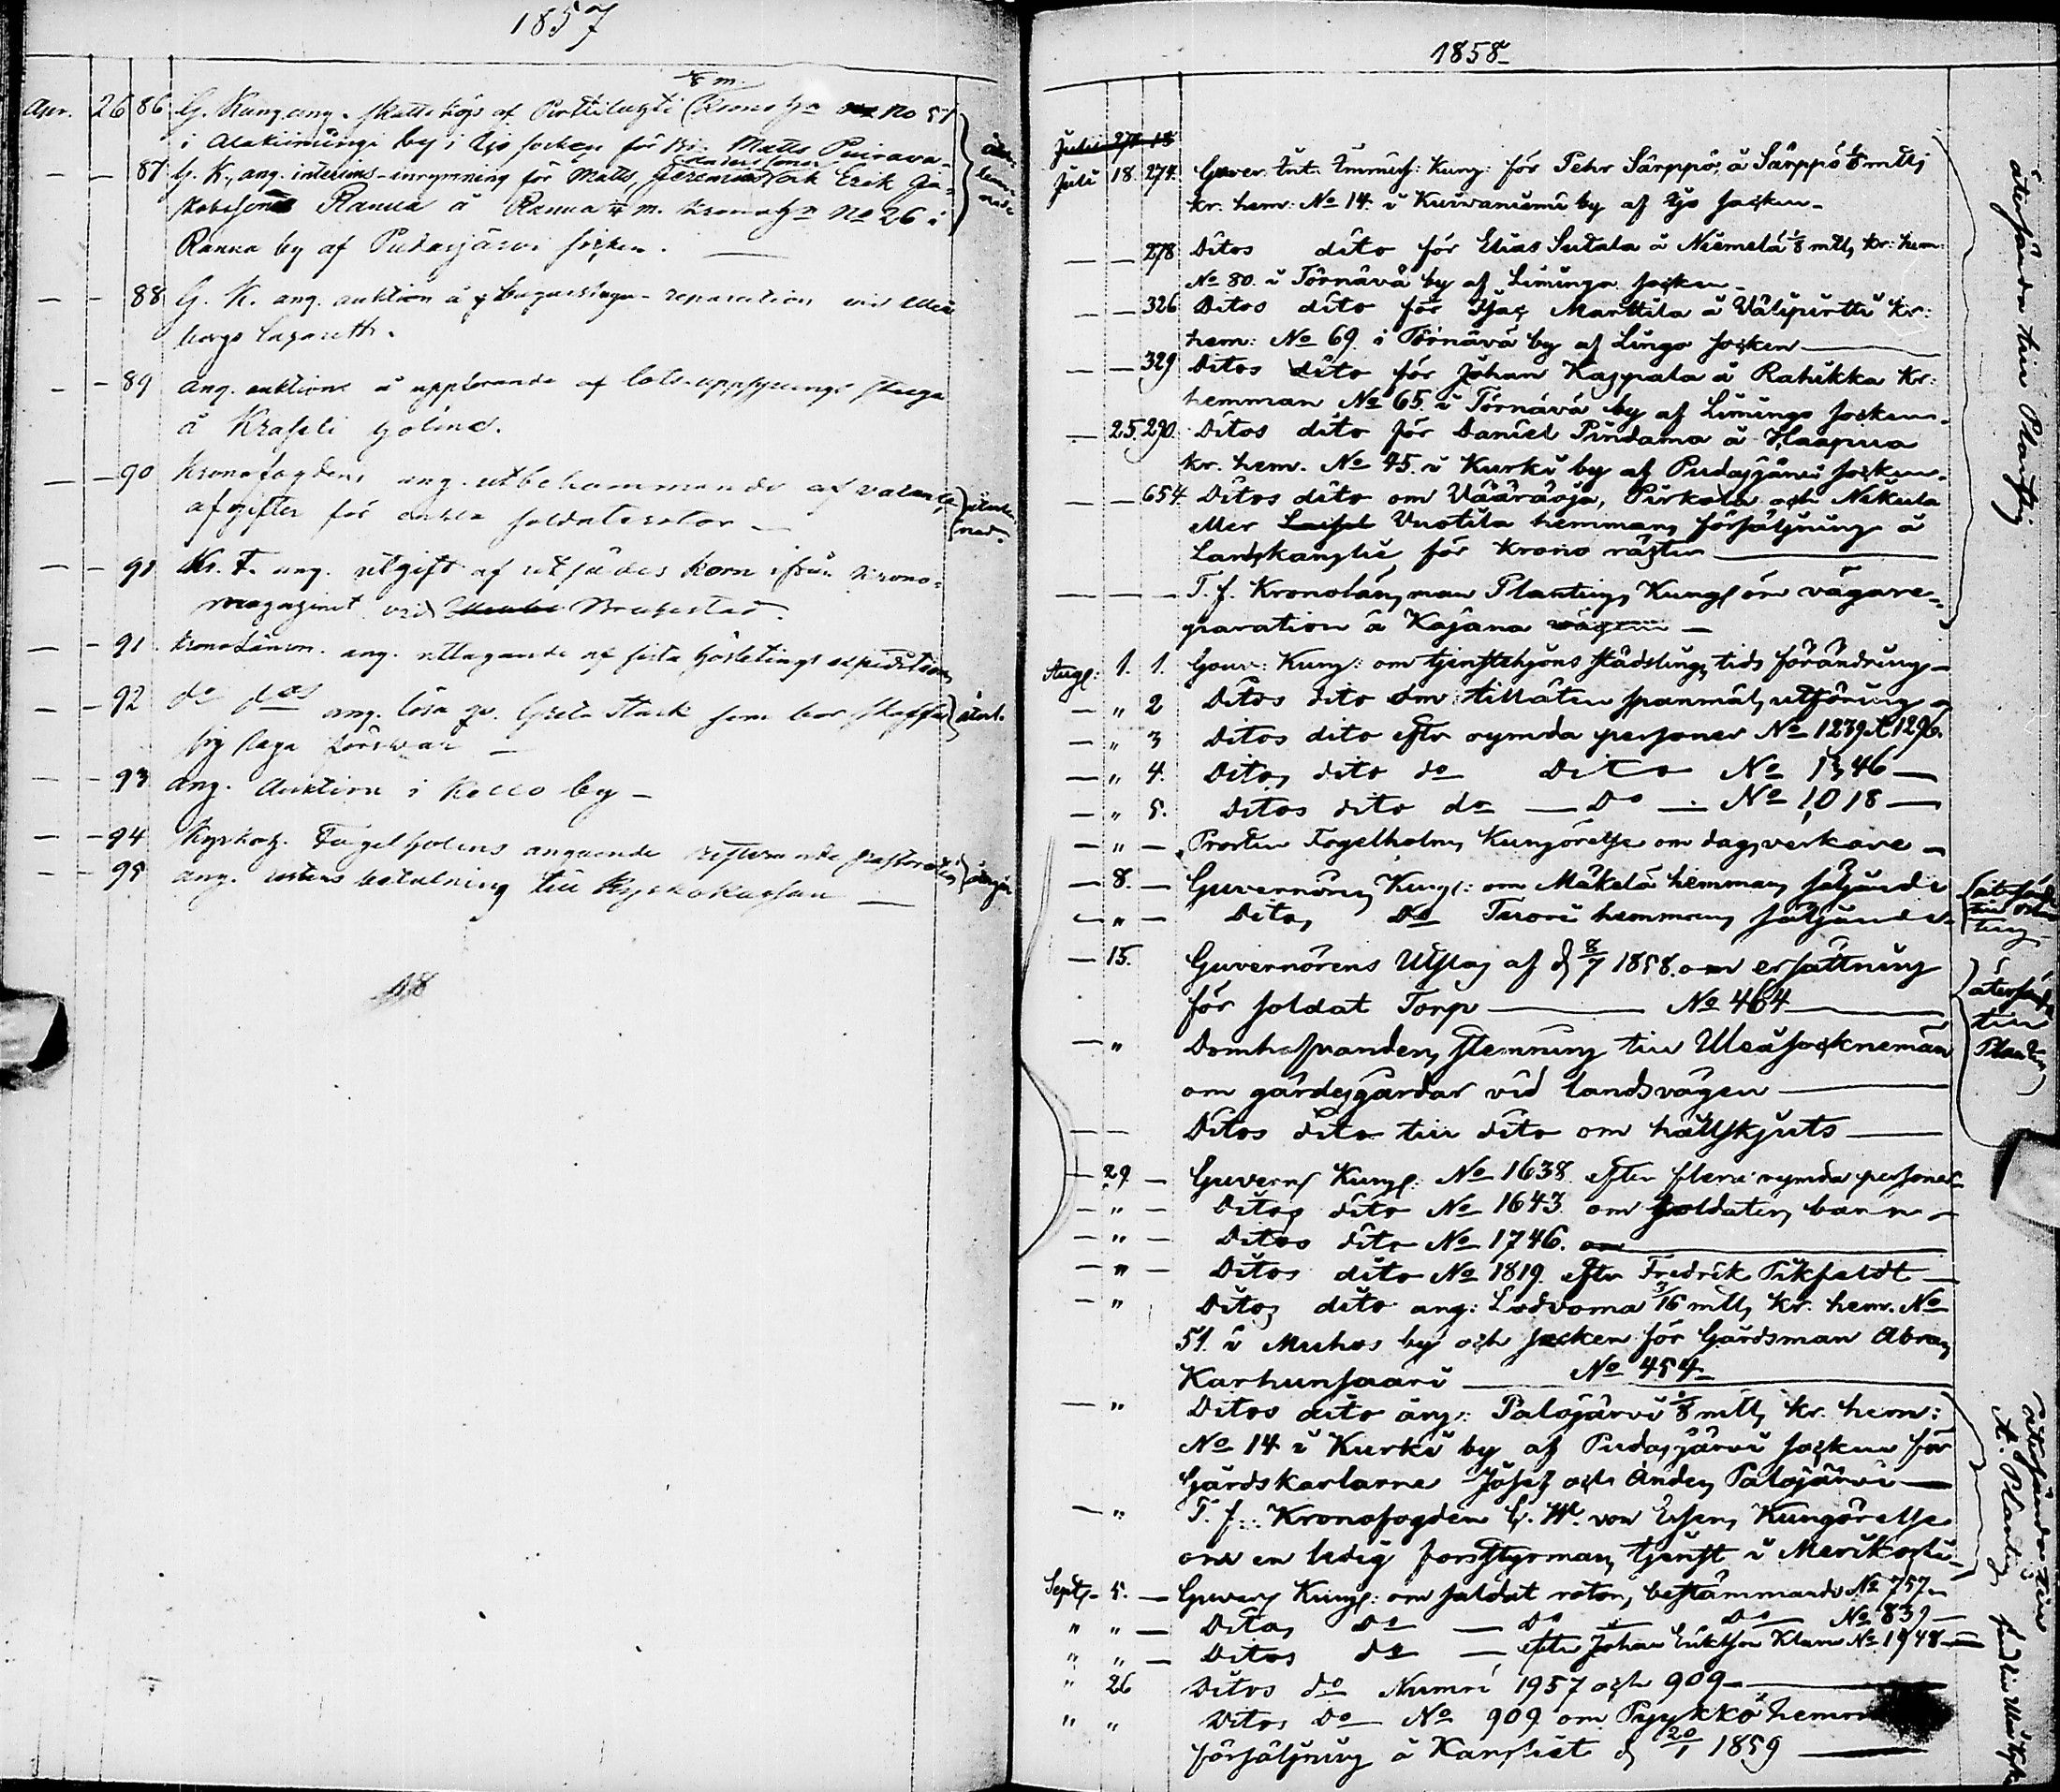 1857
⅛ m.
Apr. 26 86 G. Kung. ang. skatteköp af Pirttilahti Krono Hn No 51
i Alakiiminge by i Ijo socken för Matts Puirava-
- - 87 G. K., ang. interims-inrymning för Matts och Erik Ja-
Ranua å Ranua ¼ m. Krono Hn No 26 i
Ranua by af Pudasjärvi socken.
- - 88 G. K. ang. auktion å reparation vid Uleå
borgs lazareth.
- - 89 ang. auktion å uppförande af lots-uppsynings stuga
å Kraseli holme.
- - 90 Kronofogdens ang. utbekommande af vakans
afgifter för enkla soldaterotor -
- - 91 Kr. F. ang. utgift af utsädes korn ifrån Krono-
magazinet vid Brahestad.
- - 91 Kronolänsm. ang. uttagande af sista hösteting expedition
- - 92 do dos ang. lösa qv. Greta Stark som bör skaffa
sig laga försvar -
- - 93 ang. Auktion i Kello by -
- - 94 Kyrkoh. Fogelholms angående resterande
- - 95 ang. betalning till Kyrkokassan -
1858
Julii 274 18
Juli 18. 274. Guver. Int. Immiss: Kung: för Pehr Särppö, å Särppö ⅛ mtls
kr. hem: No 14. i Kuivaniemi by af Ijo socken -
- - 278 Ditos dito för Elias Seitala å Niemelä ⅛ mtl, kr: hem:
No 80. i Törnävä by af Limingo socken -
- - 326 Ditos dito för Isac Marttila å Välipirtti kr:
hem: No 69 i Törnävä by af Lingo socken
- - 329 Ditos dito för Johan Kaspala å Rahikka kr:
hemman No 65. i Törnävä by af Limingo socken.
- 25. 290. Ditos dito för Daniel Pindama å Haapua
kr. hem. No 45. i Kurki by af Pudasjärvi socken.
- - 654 Ditos dito om Vääräoja, Pirkola och Nikula
eller Vuotila hemmans försäljning å
Landskanslie, för krono räster
- - - T. f. Kronolänsman Plantings Kungl om vägare-
paration å Kajana vägen -
Augs: 1. 1. Gouv: Kung: om tjenstehjons städslings tids förändring -
- " 2 Ditos dito om tillåten spanmåls utföring -
- " 3 Ditos dito efter rymda personer No 1239 & 1296.
- " 4. Ditos dito do Dito No 1346 -
- " 5. Ditos dito do - Do - No 1,018 -
- " - Prosten Fogelholms Kungörelse om dagsverkare -
- 8. - Guvernörens Kungl: om Mäkelä hemmans säljande
- " - Ditos Do Tuori hemmans säljande
- 15. Guvernörens Utslag af d 8/7 1858. om ersättning
för soldat Torp - No 464
- " Domhafvandens stemning till Uleå sockneman
om gärdesgårdar vid landsvägen -
- - Ditos dito till dito om hållskjuts -
- 29. - Guverns Kungl: No 1638. efter flere rymda personer
- " - Ditos dito No 1643. om soldaters barn -
- " - Ditos dito No 1746. om
- " - Ditos dito No 1819. efter Fredrik Pikfeldt -
- " Ditos dito ang: Lodvoma 3/16 mtl, kr. hem. No
51. i Muhos by och socken för Gårdsman Abram
Karhunsaari No 454 -
- " Ditos dito ang: Palojärvi ⅛ mtl, kr. hem:
No 14 i Kurki by af Pudasjärvi socken för
Gårdskarlarne Josef och Anders Palojärvi -
- " T. f. Kronofogden C. W. von Essens Kungörelse
om en ledig forststyrmans tjenst i Merikoski -
Sept. 5. - Guvers Kungl: om soldat rotors bestämmande No 757 -
" " - Ditos Do - Do - Do - No 839 -
" " - Ditos do - efter Johan Eriksson Klaus No 1948 -
" 26 Ditos do Numri 1957 och 909 -
" " Ditos Do No 909. om Pyykkö
försäljning å Kansliet d 20/1 1859 -
återsända till Planting
återsända
till
Planting
återsända till
A. Planting